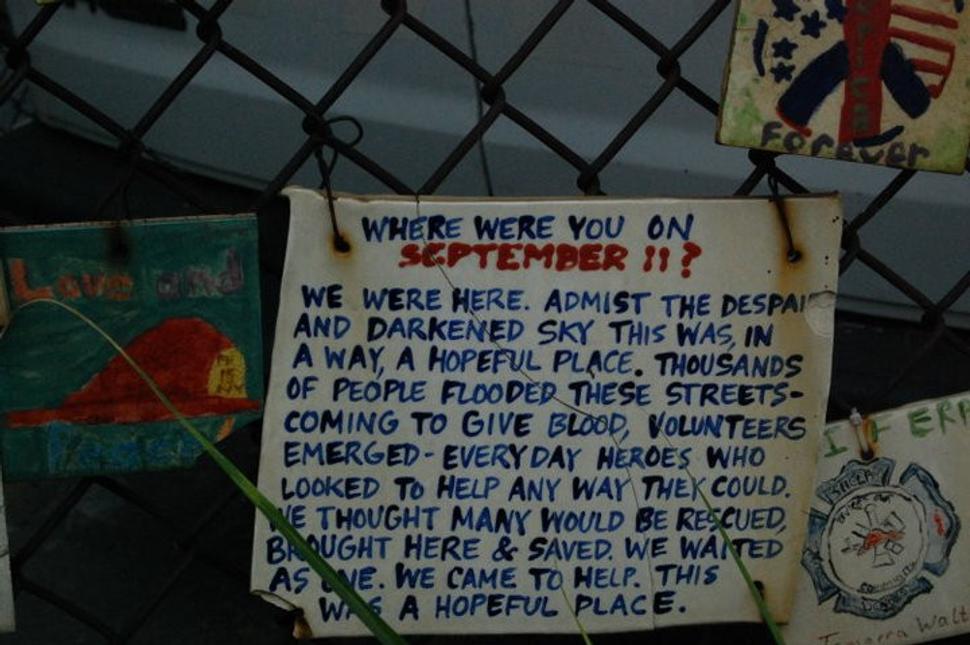 Forever
WHERE WERE YOU ON
SEPTEMBER 11?
WE WERE HERE. ADMIST THE DESPAI
AND DARKENED SKY THIS WAS, IN
A WAY, A HOPEFUL PLACE. THOUSANDS
OF PEOPLE FLOODED THESE STREETS-
COMING TO GIVE BLOOD, VOLUNTEERS
EMERGED - EVERYDAY HEROES WHO
LOOKED TO HELP ANY WAY THEY COULD.
WE THOUGHT MANY WOULD BE RESCUED,
BROUGHT HERE & SAVED. WE WAITED
AS ONE. WE CAME TO HELP. THIS
WAS A HOPEFUL PLACE.
Love and